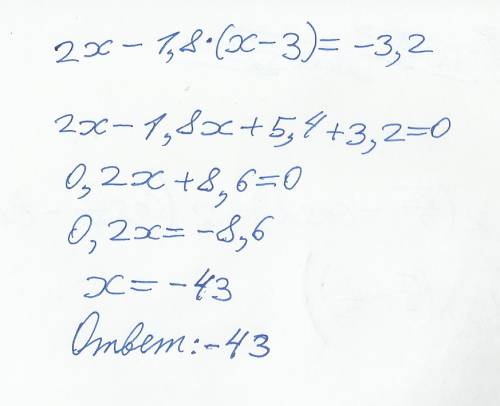 2x - 1,8·(x-3) = -3,2
2x - 1,8x + 5,4 + 3,2 = 0
0,2x + 8,6 = 0
0,2x = -8,6
x = -43
Ответ: -43